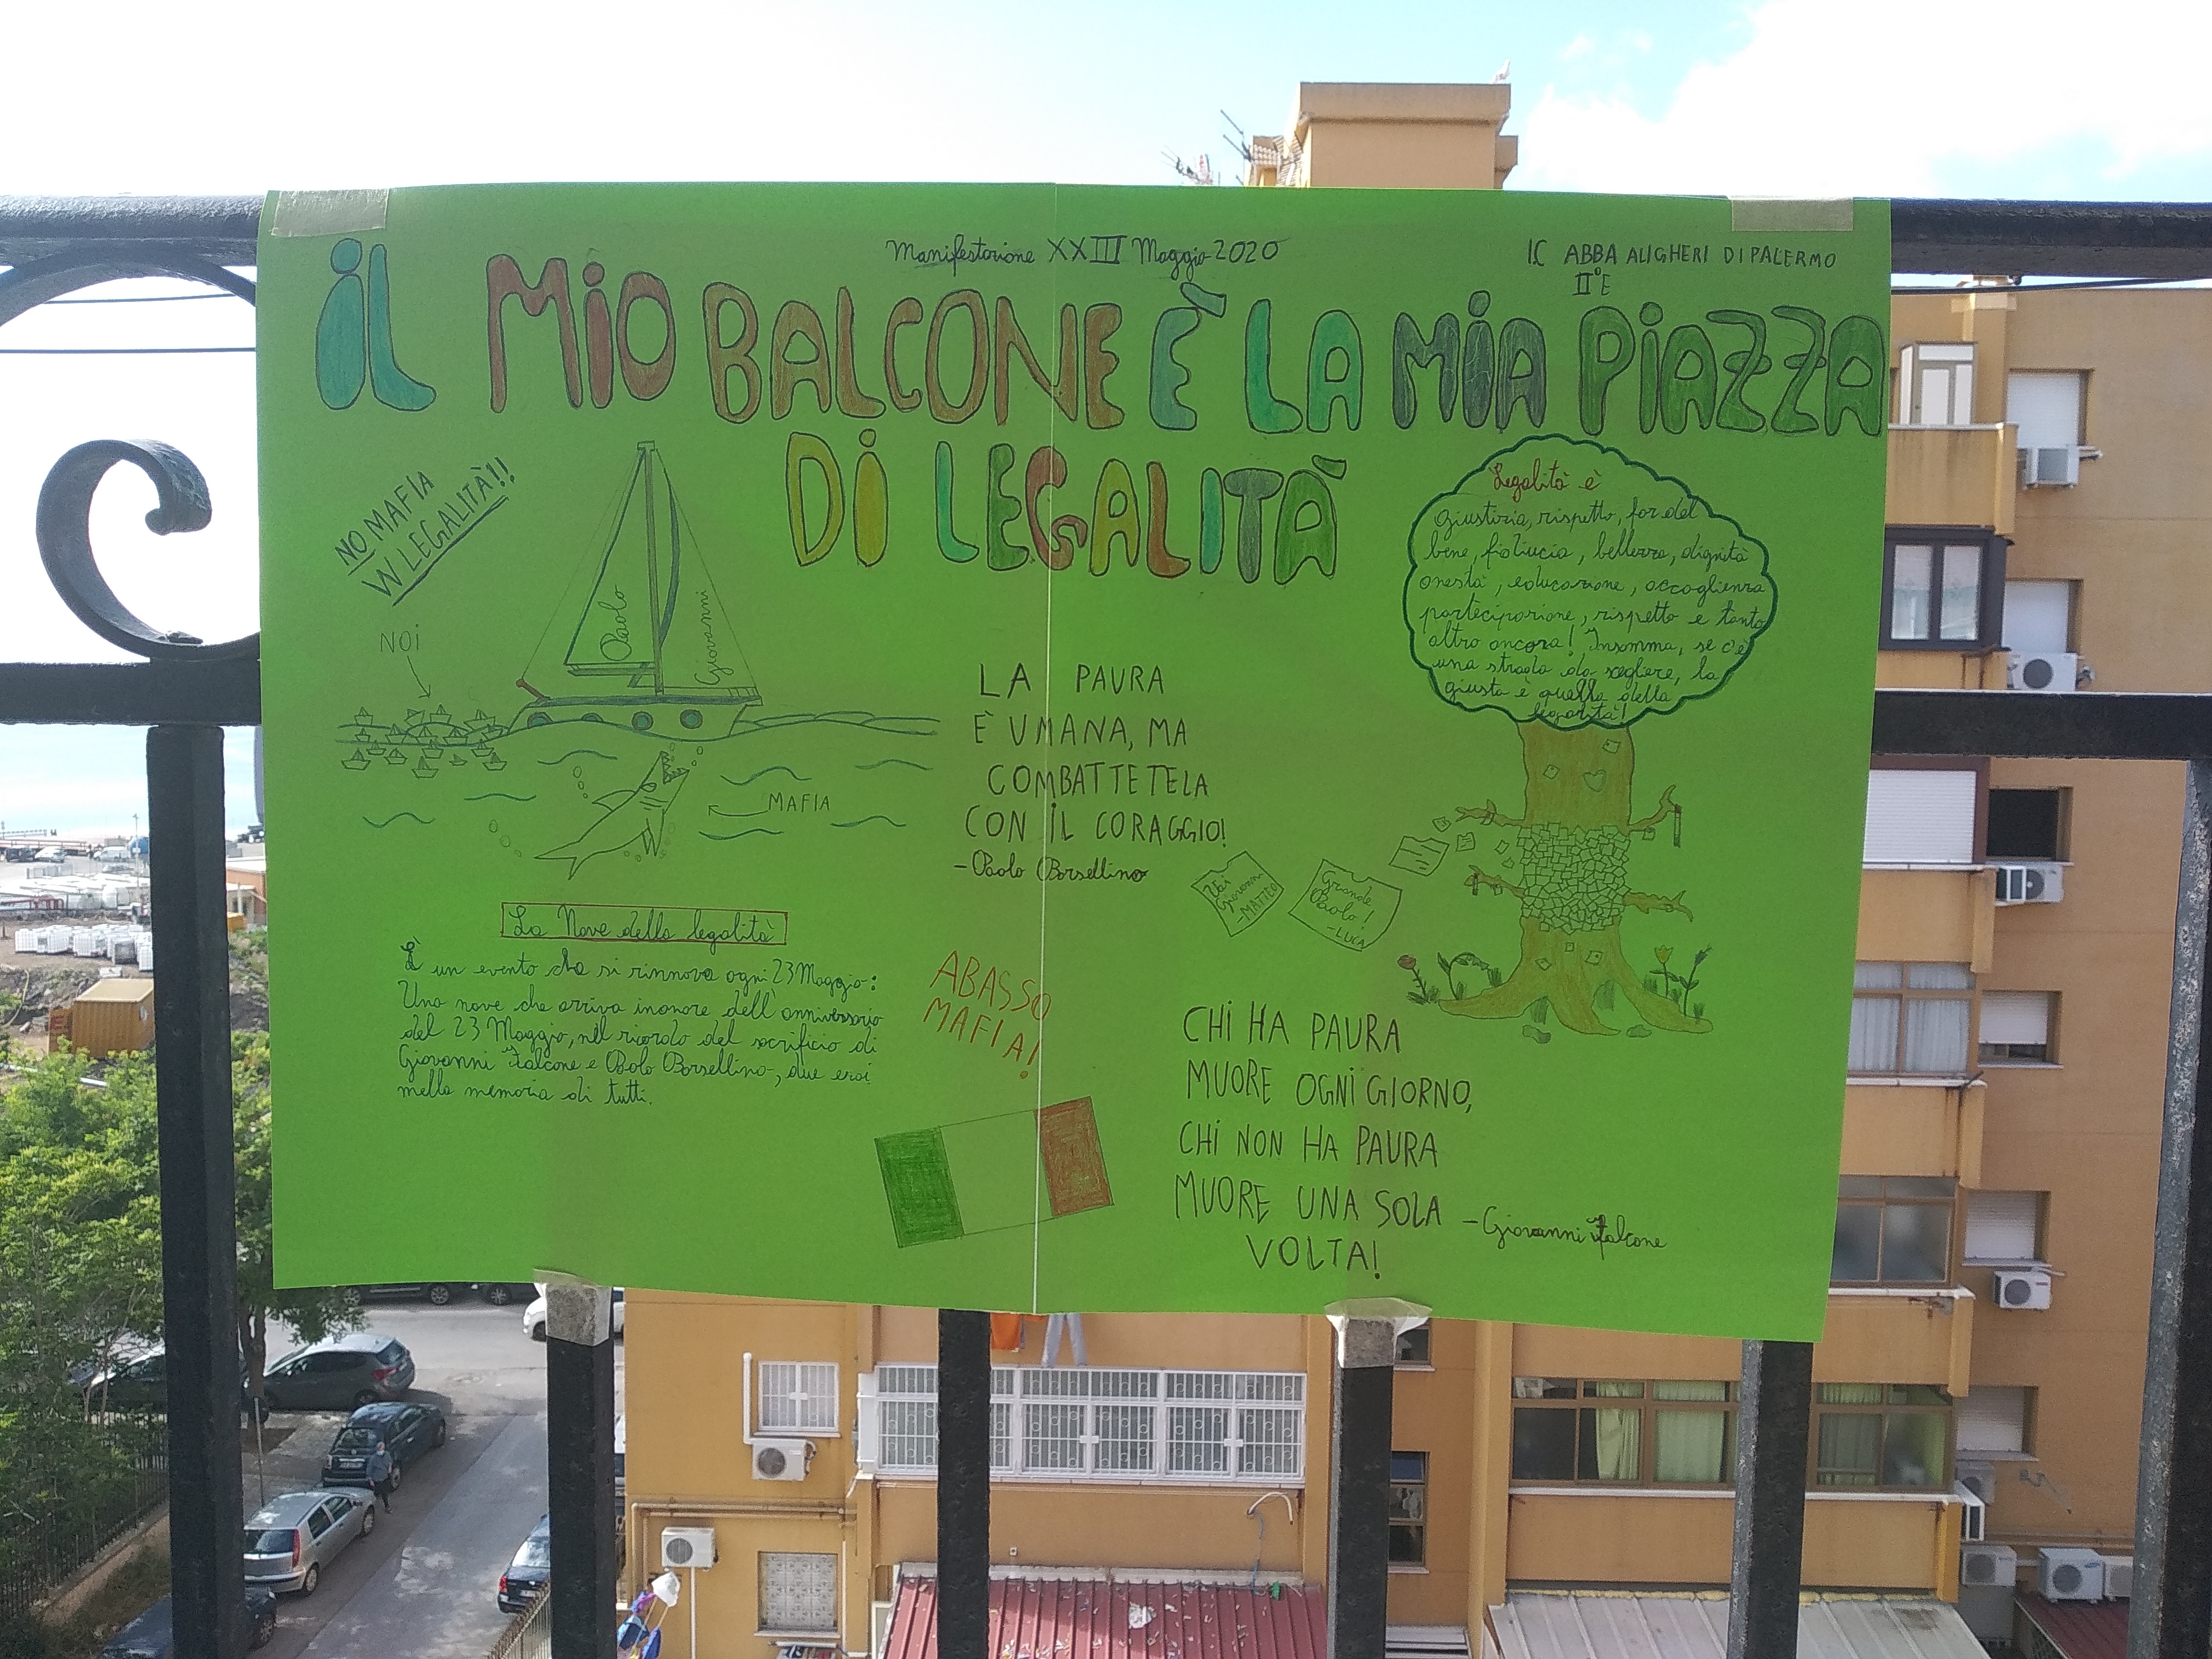 Manifestazione XXIII Maggio 2020
I.C ABBA ALIGHERI DI PALERMO
II°E
iL MiO BALCONE È LA MiA PiAZZA
Di LEGALITÀ
NO MAFIA
W LEGALITÀ!!
NOi
Paolo
Giovanni
MAFIA
LA PAURA
È UMANA, MA
COMBATTETELA
CON iL CORAGGIO!
-Paolo Borsellino
Legalità è
giustizia, rispetto, far del
bene, fiducia, bellezza, dignità
onestà, educazione, accoglienza
partecipazione, rispetto e tanto
altro ancora! Insomma, se c'è
una strada da scegliere, la
giusta è quella della
legalità!
Vai
Giovanni
-MATTEO
Grande
Paolo!
-LUCA
La Nave della legalità
È un evento che si rinnova ogni 23 Maggio:
Una nave che arriva in onore dell'anniversario
del 23 Maggio, nel ricordo del sacrificio di
Giovanni Falcone e Paolo Borsellino, due eroi
nella memoria di tutti.
ABASSO
MAFIA!
CHi HA PAURA
MUORE OGNi GIORNO,
CHi NON HA PAURA
MUORE UNA SOLA
VOLTA!
-Giovanni Falcone